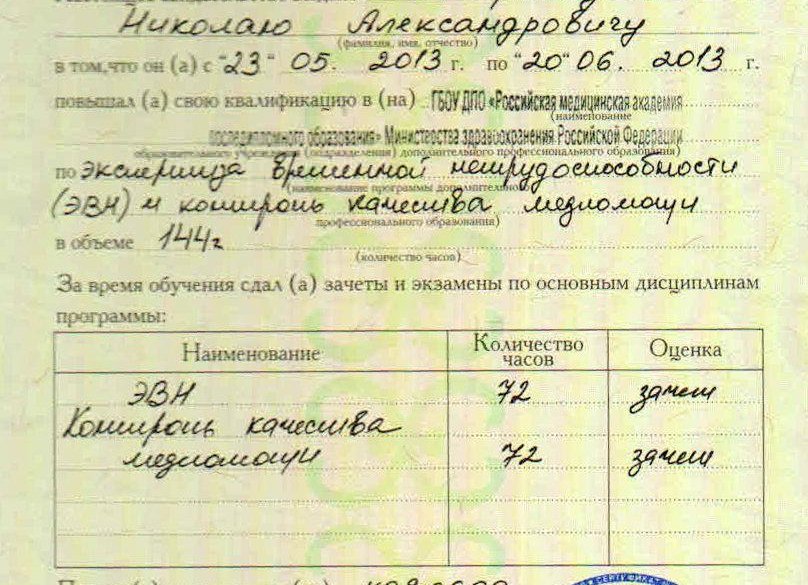 Николаю Александровичу
(фамилия, имя, отчество)
в том,что он (а) с "23" 05. 2013 г. по "20" 06. 2013 г.
повышал (а) свою квалификацию в (на) ГБОУ ДПО «Российская медицинская академия
(наименование
последипломного образования» Министерства здравоохранения Российской Федерации
образовательного учреждения (подразделения) дополнительного профессионального образования)
по экспертиза временной нетрудоспособности
(наименование программы дополнительного
(ЭВН) и контроль качества медпомощи
профессионального образования)
в объеме 144г
(количество часов)
За время обучения сдал (а) зачеты и экзамены по основным дисциплинам
программы:
Наименование Количество часов Оценка
ЭВН 72 зачет
Контроль качества
медпомощи 72 зачет